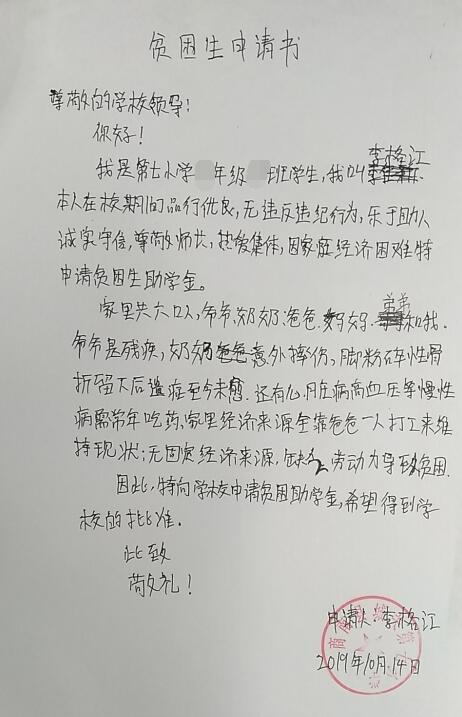 贫困生申请书
尊敬的学校领导!
你好!
我是第七小学 年级 班学生,我叫李格江.
本人在校期间品行优良,无违反违纪行为,乐于助人
诚实守信,尊敬师长,热爱集体,因家庭经济困难特
申请贫困生助学金。
家里共六口人,爷爷、奶奶、爸爸、妈妈、弟弟和我.
爷爷是残疾,奶奶意外摔伤,脚粉碎性骨
折留下后遗症至今未愈.还有心脏病高血压等慢性
病需常年吃药,家里经济来源全靠爸爸一人打工来维
持现状;无固定经济来源,缺乏劳动力导致贫困.
因此,特向学校申请贫困助学金,希望得到学
校的批准.
此致
敬礼!
申请人:李格江
2019年10月14日